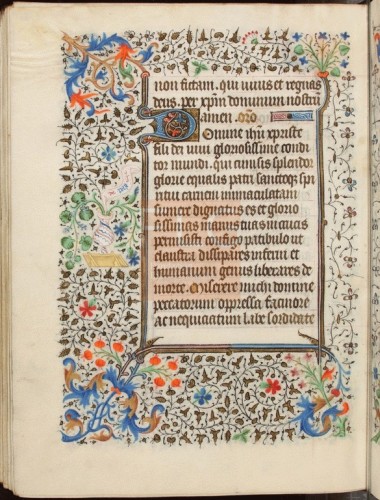 non fictam. qui viuis et regnas
deus. per xpm dominum nostrum
Omine ihu xpriste
fili dei viui gloriosissime condi
tor mundi. qui cum sis splendor
glorie equalis patri sanctoqz spi
ritui carnem immaculatam
sumere dignatus es et glorio
sissimas manus tuas in crucis
permisisti configo patibulo ut
claustra dissipares inferni et
humanum genus liberares de
morte. Miserere michi domine
peccatorum oppressa facinore
ac nequitiarum labe sordidate